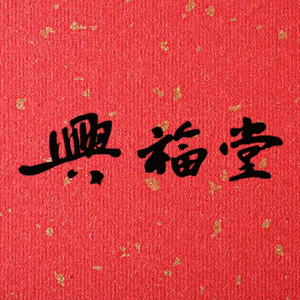 興福堂